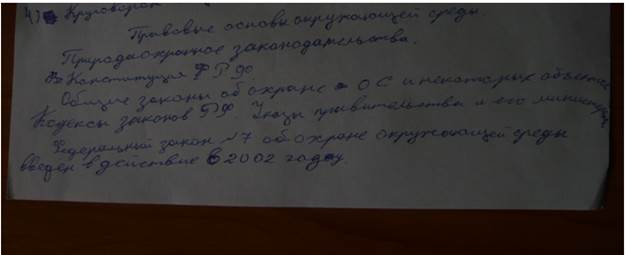 4) Круговорот
Правовые основы окружающей среды.
Природоохранное законодательства.
Конституция РФ.
Общие законы об охране ОС и некоторых объектов
Кодексы законов РФ. Указы правительства и его министров,
Федеральный закон №7 об охране окружающей среды
введён в действие в 2002 году.